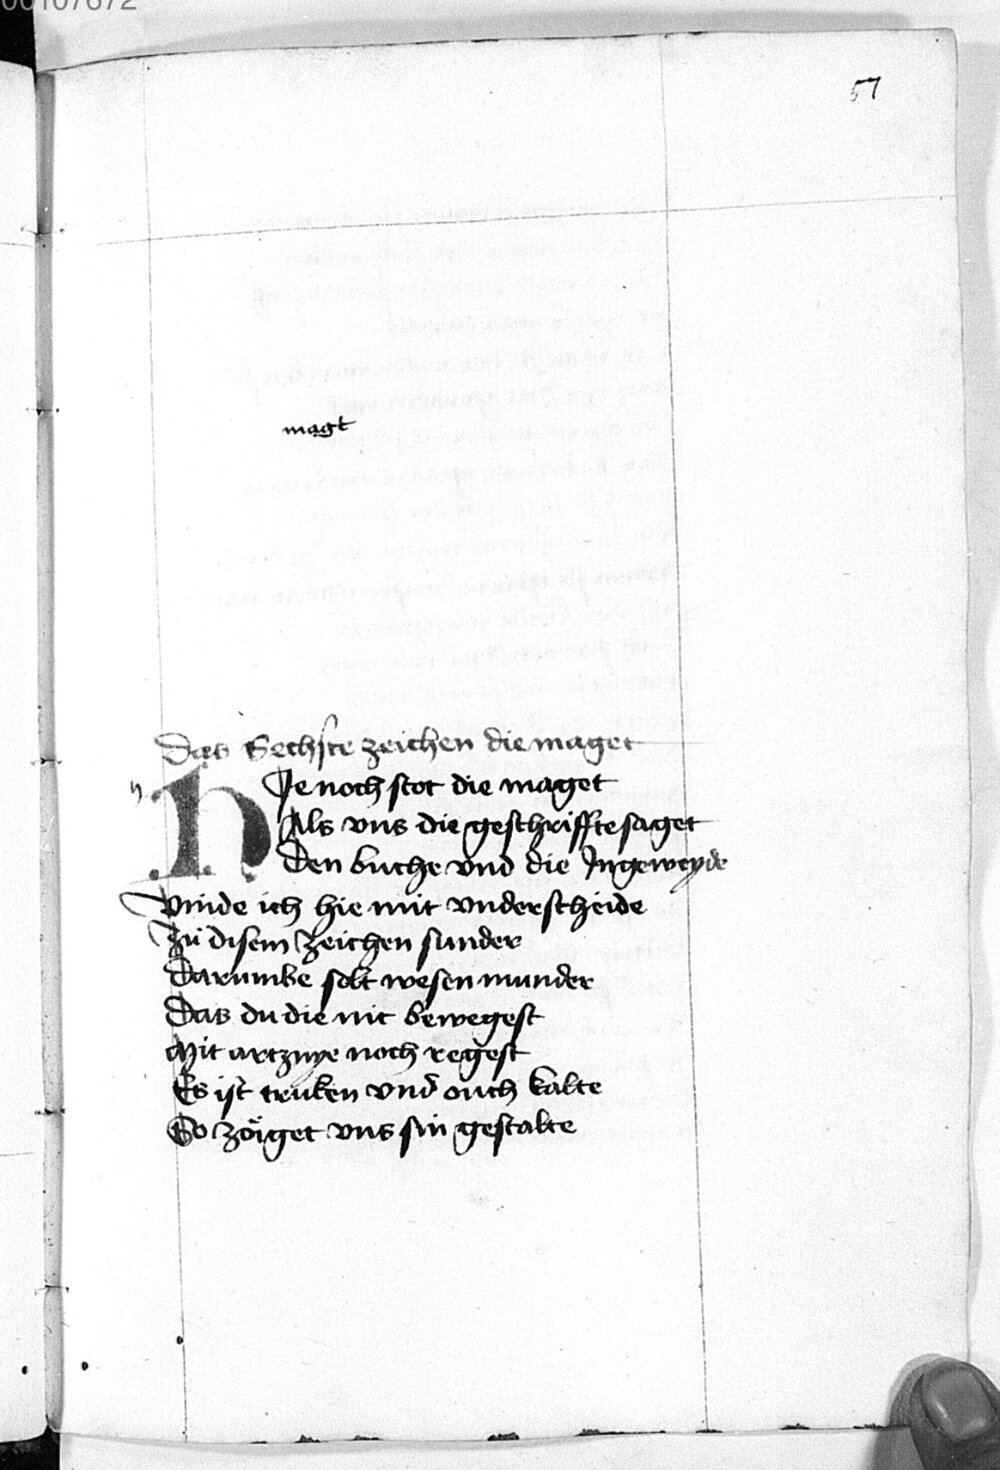 00107672
57
magt
Das Sechste zeichen die maget
h
HIe noch stot die maget
Als vns die geschriffte saget
Den buche vnd die Ingeweyde
Vinde ich hie mit vnderscheide
Zü disem zeichen sunder
Darumbe solt wesen munder
Das du die nit bewegest
Mit artznye noch regest
Es ist truken vnd ouch kalte
So zöiget vns sin gestalte